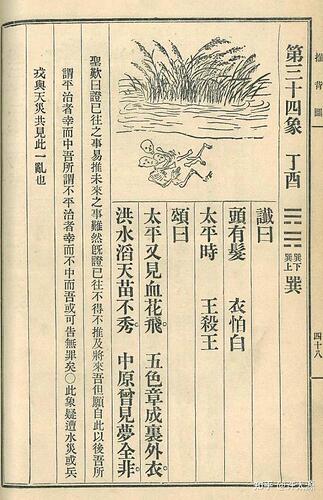 推背圖
四十八
第三十四象 丁酉
巽下巽上 巽
讖曰
頭有髮 衣怕白
太平時 王殺王
頌曰
太平又見血花飛。 五色章成裏外衣。
洪水滔天苗不秀。 中原曾見夢全非。
聖歎曰證已往之事易推未來之事難然旣證已往不得不推及將來吾但願自此以後吾所
謂平治者幸而中吾所謂不平治者幸而不中而吾或可告無罪矣〇此象疑遭水災或兵
戎與天災共見此一亂也